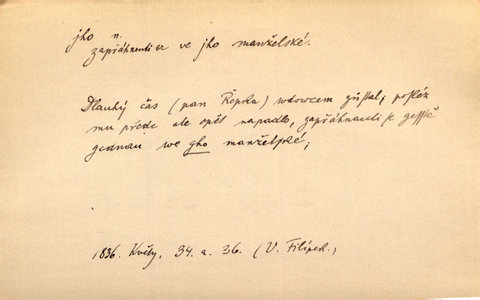 jho n.
zapřáhnouti se ve jho manželské.
Dlauhý čas (pan Řepka) wdowcem zůstal; posléz
mu přede ale opět napadlo, zapřáhnauti se gessтě
gednau we gho manželské;
1836. Květy, 34. a. 36. (V. Filípek.)